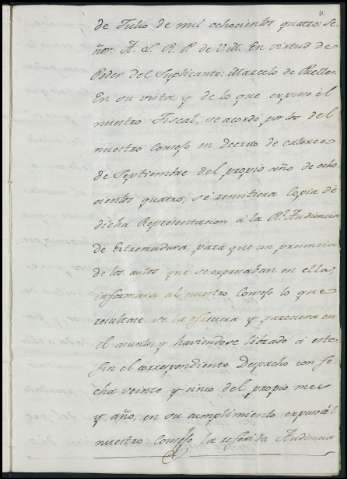 de Julio de mil ochocientos quatro. Se-
ñor. A. L. R. P. de V. M. En virtud de
Poder del Suplicante: Marcelo de
En su vista y de lo que expuso el
nuestro Fiscal, se acordo por los del
nuestro Consejo en decreto de catorce
de Septiembre del propio año de ocho-
cientos quatro, se remitiera copia de
dicha Representacion à la Rl. Audiencia
de Extremadura para que con presencia
de los autos que se expresaban en ella,
informara al nuestro Consejo lo que
resultare y pareciera en
el asunto, y haviendose librado à este
fin el correspondiente Despacho con fe-
cha veinte y uno del propio mes
y año, en su cumplimiento expuso al
nuestro Consejo la referida Audiencia